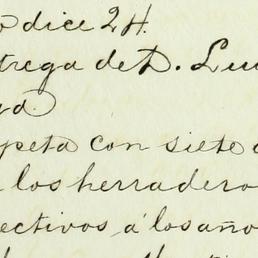 dice 24.
trega de D. Lui
peta con siete
los herradero
ectivos á los año